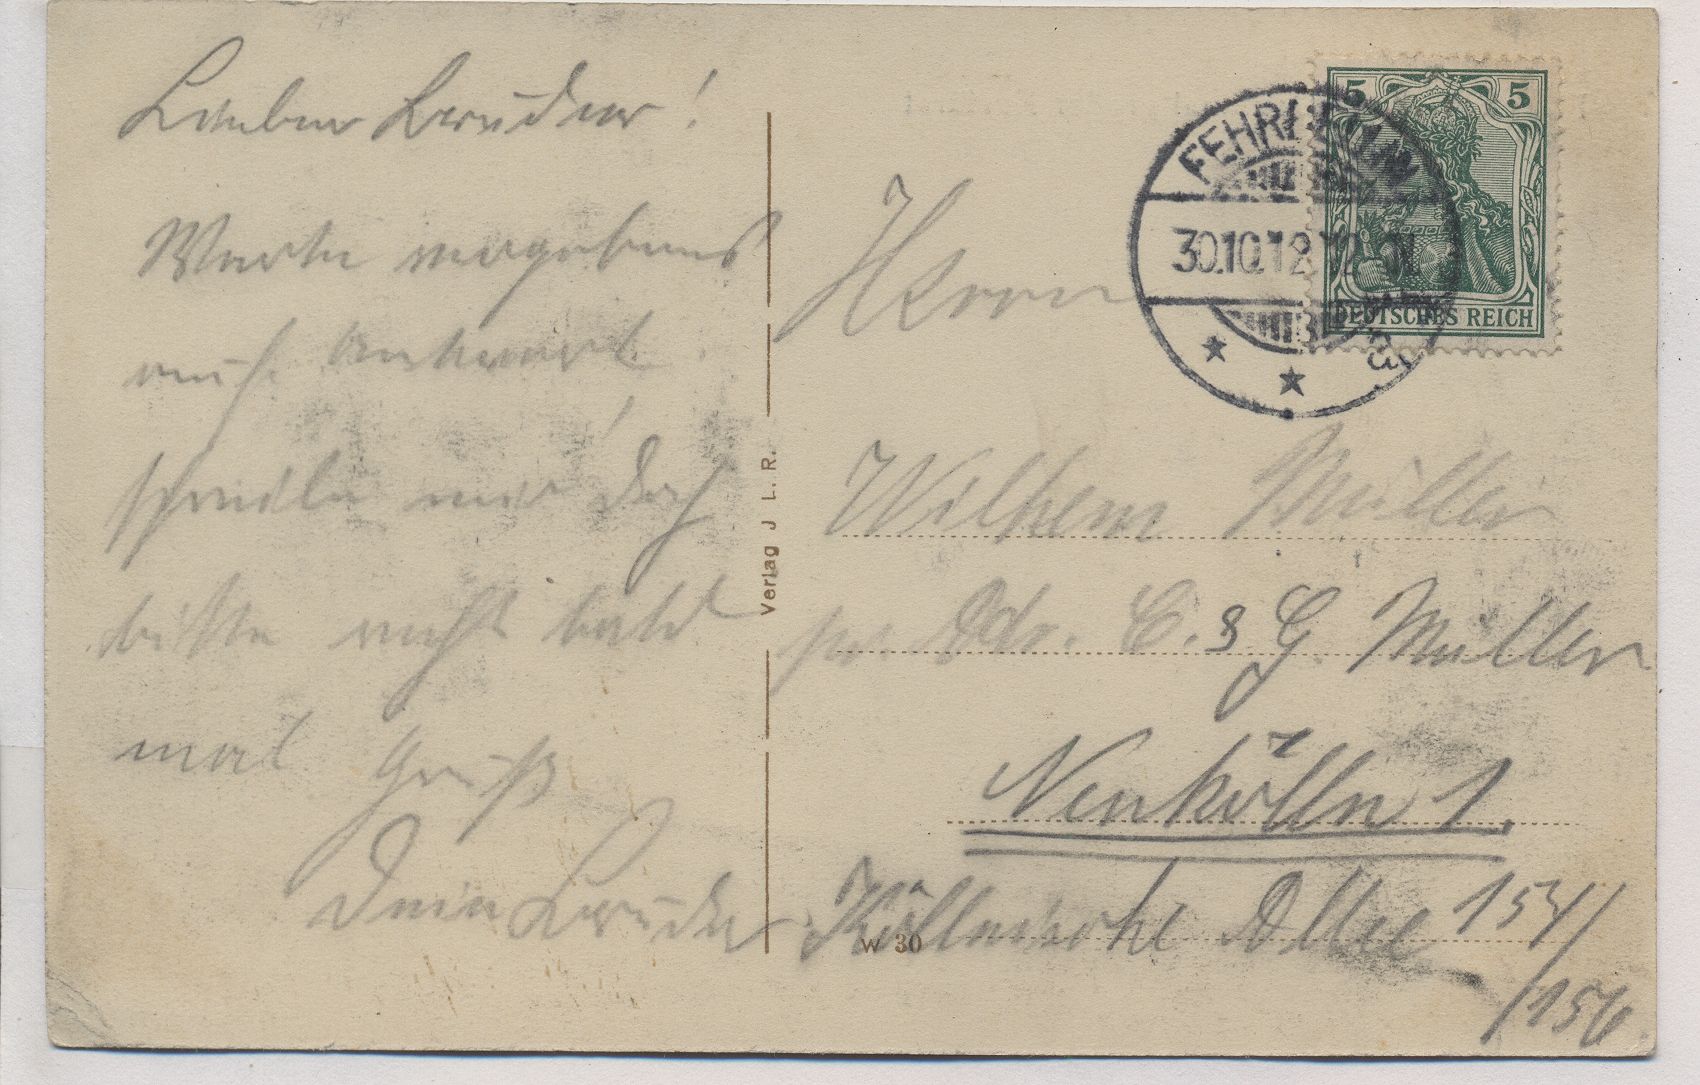 Lieber Bruder!
Warte vergebens
auf Antwort.
schreibe mir doch
bitte recht bald
mal Gruß
Dein Bruder
Verlag J. L. R.
FEHRBELLIN
30.10.12.12
5 5
DEUTSCHES REICH
Herrn
Wilhelm Müller
pr. Adr. C. & G. Müller
Neukölln 1.
Köllnische Allee 154/
/156.
W 30